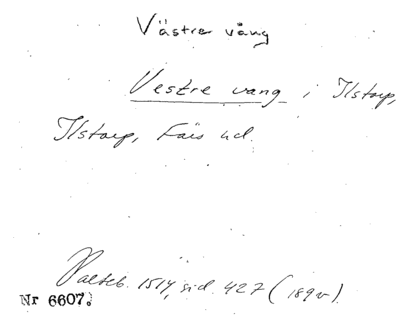 Västra vång
Vestre vang i Ilstorp,
Ilstorp, Färs hd.
Palteb. 1514, sid. 427 (189v).
Nr 6607.